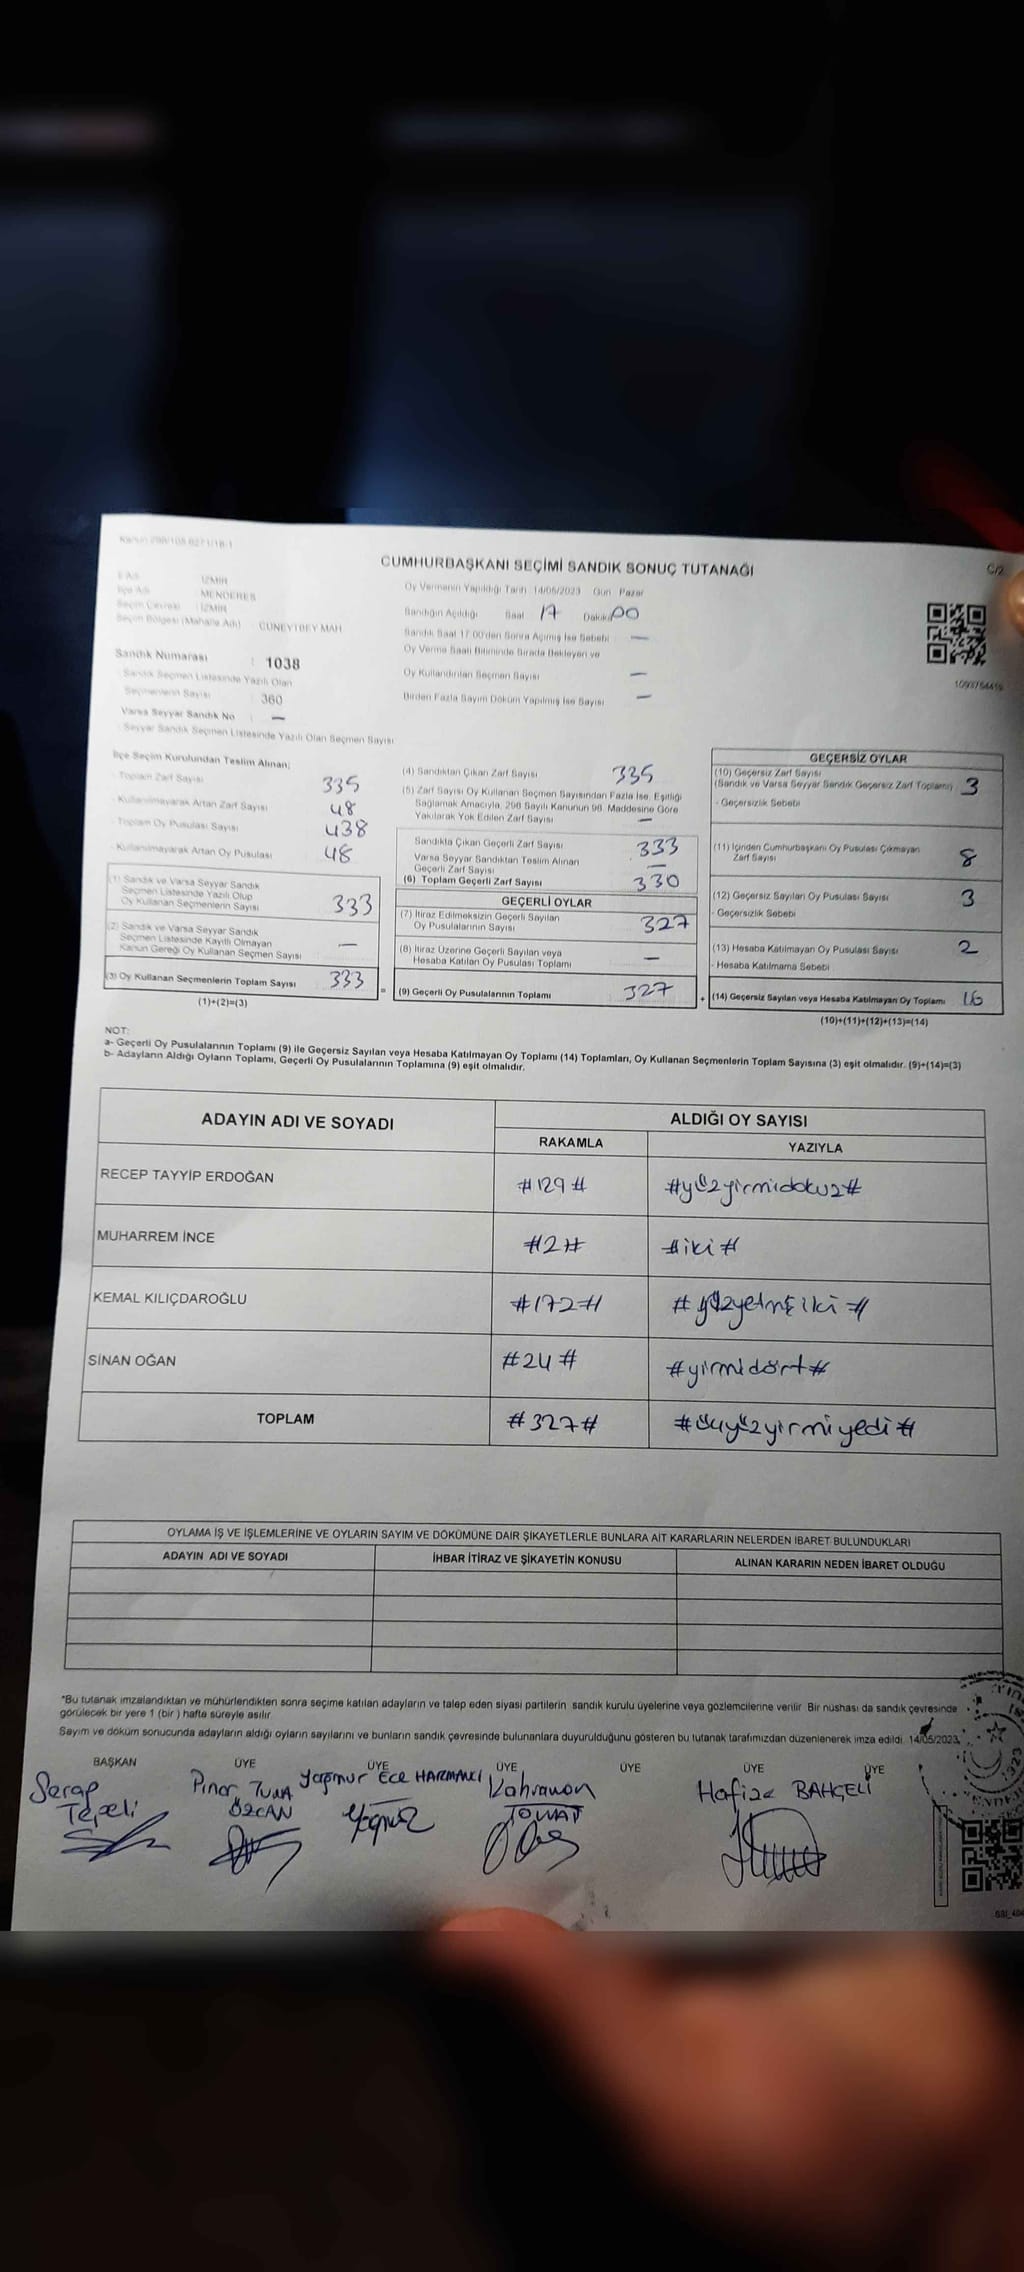 CUMHURBAŞKANI SEÇİMİ SANDIK SONUÇ TUTANAĞI
C/2
İl Adı : İZMİR
İlçe Adı : MENDERES
Seçim Çevresi : İZMİR
Seçim Bölgesi (Mahalle Adı) : CÜNEYTBEY MAH
Sandık Numarası : 1038
Sandık Seçmen Listesinde Yazılı Olan
Seçmenlerin Sayısı : 360
Varsa Seyyar Sandık No : —
Seyyar Sandık Seçmen Listesinde Yazılı Olan Seçmen Sayısı
Oy Vermenin Yapıldığı Tarih : 14/05/2023 Gün : Pazar
Sandığın Açıldığı Saat 17 Dakika 00
Sandık Saat 17.00'den Sonra Açılmış İse Sebebi : —
Oy Verme Saati Bitiminde Sırada Bekleyen ve
Oy Kullandırılan Seçmen Sayısı —
Birden Fazla Sayım Döküm Yapılmış İse Sayısı —
İlçe Seçim Kurulundan Teslim Alınan;
- Toplam Zarf Sayısı 335
- Kullanılmayarak Artan Zarf Sayısı 48
- Toplam Oy Pusulası Sayısı 438
- Kullanılmayarak Artan Oy Pusulası 48
(1) Sandık ve Varsa Seyyar Sandık
Seçmen Listesinde Yazılı Olup
Oy Kullanan Seçmenlerin Sayısı 333
(2) Sandık ve Varsa Seyyar Sandık
Seçmen Listesinde Kayıtlı Olmayan
Kanun Gereği Oy Kullanan Seçmen Sayısı —
(3) Oy Kullanan Seçmenlerin Toplam Sayısı 333
(1)+(2)=(3)
(4) Sandıktan Çıkan Zarf Sayısı 335
(5) Zarf Sayısı Oy Kullanan Seçmen Sayısından Fazla İse, Eşitliği
Sağlamak Amacıyla, 298 Sayılı Kanunun 98. Maddesine Göre
Yakılarak Yok Edilen Zarf Sayısı —
Sandıkta Çıkan Geçerli Zarf Sayısı 333
Varsa Seyyar Sandıktan Teslim Alınan
Geçerli Zarf Sayısı —
(6) Toplam Geçerli Zarf Sayısı 330
GEÇERLİ OYLAR
(7) İtiraz Edilmeksizin Geçerli Sayılan
Oy Pusulalarının Sayısı 327
(8) İtiraz Üzerine Geçerli Sayılan veya
Hesaba Katılan Oy Pusulası Toplamı —
= (9) Geçerli Oy Pusulalarının Toplamı 327
GEÇERSİZ OYLAR
(10) Geçersiz Zarf Sayısı
(Sandık ve Varsa Seyyar Sandık Geçersiz Zarf Toplamı) 3
- Geçersizlik Sebebi
(11) İçinden Cumhurbaşkanı Oy Pusulası Çıkmayan
Zarf Sayısı 8
(12) Geçersiz Sayılan Oy Pusulası Sayısı 3
- Geçersizlik Sebebi
(13) Hesaba Katılmayan Oy Pusulası Sayısı 2
- Hesaba Katılmama Sebebi
+ (14) Geçersiz Sayılan veya Hesaba Katılmayan Oy Toplamı 16
(10)+(11)+(12)+(13)=(14)
NOT:
a- Geçerli Oy Pusulalarının Toplamı (9) ile Geçersiz Sayılan veya Hesaba Katılmayan Oy Toplamı (14) Toplamları, Oy Kullanan Seçmenlerin Toplam Sayısına (3) eşit olmalıdır. (9)+(14)=(3)
b- Adayların Aldığı Oyların Toplamı, Geçerli Oy Pusulalarının Toplamına (9) eşit olmalıdır.
ADAYIN ADI VE SOYADI
ALDIĞI OY SAYISI
RAKAMLA YAZIYLA
RECEP TAYYİP ERDOĞAN #129# #yüzyirmidokuz#
MUHARREM İNCE #2# #iki#
KEMAL KILIÇDAROĞLU #172# #yüzyetmişiki#
SİNAN OĞAN #24# #yirmidört#
TOPLAM #327# #üçyüzyirmiyedi#
OYLAMA İŞ VE İŞLEMLERİNE VE OYLARIN SAYIM VE DÖKÜMÜNE DAİR ŞİKAYETLERLE BUNLARA AİT KARARLARIN NELERDEN İBARET BULUNDUKLARI
ADAYIN ADI VE SOYADI İHBAR İTİRAZ VE ŞİKAYETİN KONUSU ALINAN KARARIN NEDEN İBARET OLDUĞU
*Bu tutanak imzalandıktan ve mühürlendikten sonra seçime katılan adayların ve talep eden siyasi partilerin sandık kurulu üyelerine veya gözlemcilerine verilir. Bir nüshası da sandık çevresinde
görülecek bir yere 1 (bir) hafta süreyle asılır.
Sayım ve döküm sonucunda adayların aldığı oyların sayılarını ve bunların sandık çevresinde bulunanlara duyurulduğunu gösteren bu tutanak tarafımızdan düzenlenerek imza edildi. 14/05/2023
BAŞKAN ÜYE ÜYE ÜYE ÜYE ÜYE ÜYE
Serap Tepeli
Pınar Tuna ÖZCAN
Yağmur Ece HARMANKI
Kahraman TOMAT
Hafize BAHÇELİ